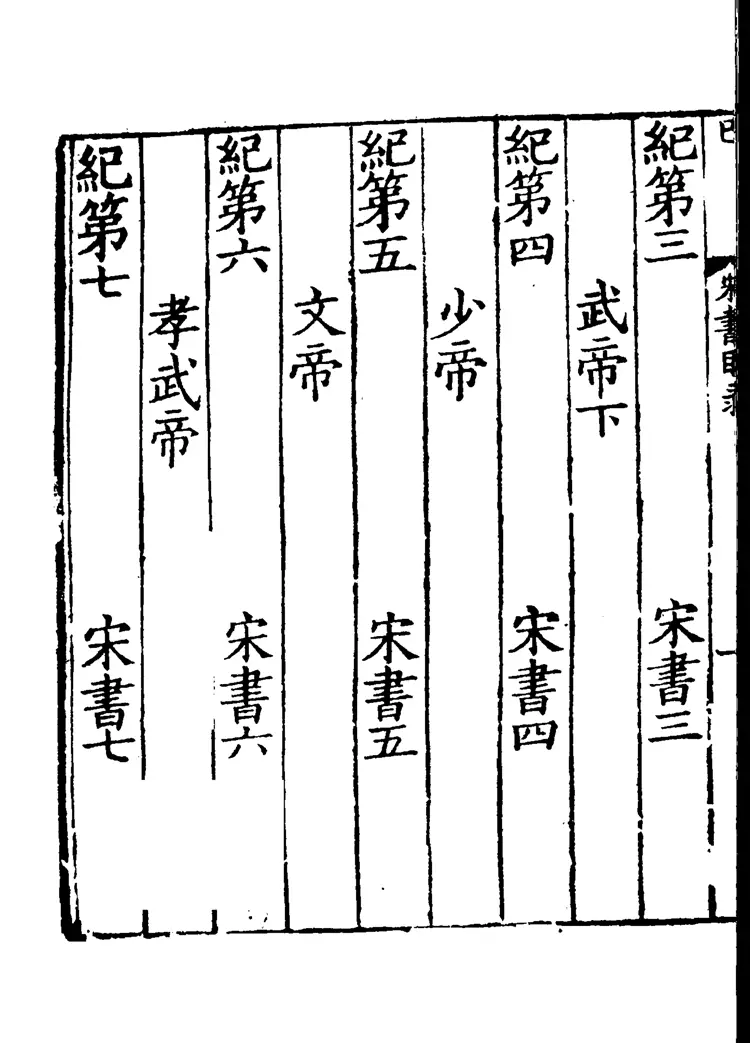 宋書目录
一
紀第三 宋書三
武帝下
紀第四 宋書四
少帝
紀第五 宋書五
文帝
紀第六 宋書六
孝武帝
紀第七 宋書七